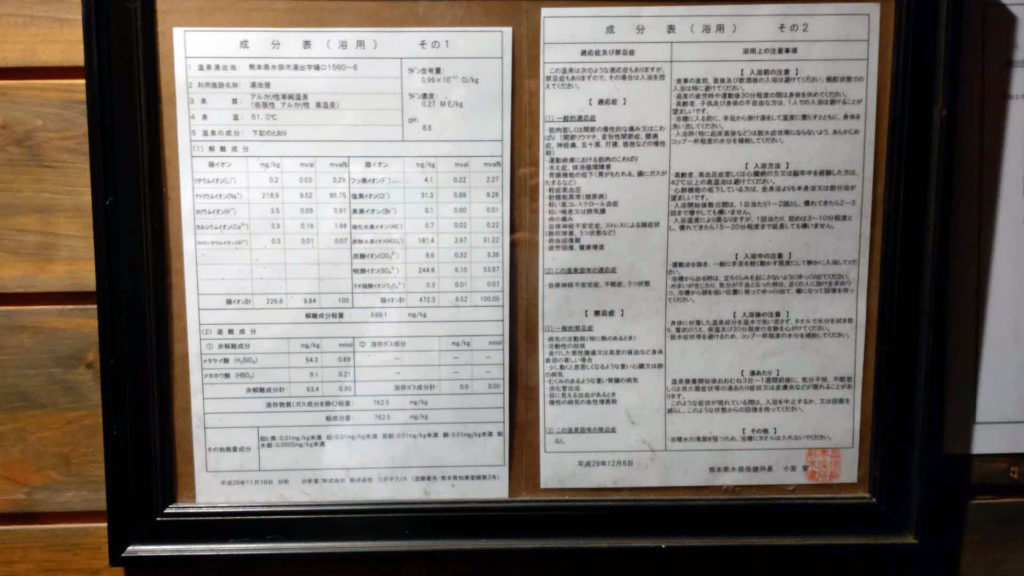 成 分 表 ( 浴 用 ) その1
1 温泉湧出地: 熊本県水俣市湯出字樋口1560-6
2 利用施設名称:
3 泉 質: アルカリ性単純温泉
(低張性 アルカリ性 高温泉)
4 泉 温: 51.0℃
5 温泉の成分: 下記のとおり
ラドン含有量:
ラドン濃度:
0.27 M・E/kg
pH:
8.6
(1) 解 離 成 分
陽イオン mg/kg mval mval% 陰イオン mg/kg mval mval%
リチウムイオン(Li⁺) 0.2 0.03 0.29 フッ素イオン(F⁻) 4.1 0.22 2.27
ナトリウムイオン(Na⁺) 218.9 9.52 96.75 塩素イオン(Cl⁻) 31.3 0.88 9.28
カリウムイオン(K⁺) 3.5 0.09 0.91 臭素イオン(Br⁻) 0.1 0.00 0.01
カルシウムイオン(Ca²⁺) 3.9 0.19 1.98 硫化水素イオン(HS⁻) 0.7 0.02 0.22
ストロンチウムイオン(Sr²⁺) 0.3 0.01 0.07 炭酸水素イオン(HCO₃⁻) 181.4 2.97 31.22
炭酸イオン(CO₃²⁻) 9.6 0.32 3.36
硫酸イオン(SO₄²⁻) 244.8 5.10 53.57
チオ硫酸イオン(S₂O₃²⁻) 0.3 0.01 0.07
陽イオン計 226.8 9.84 100 陰イオン計 472.3 9.52 100.00
解離成分総量: 699.1 mg/kg
(2) 遊 離 成 分
① 非解離成分 mg/kg mmol ② 溶存ガス成分 mg/kg mmol
メタケイ酸 (H₂SiO₃) 54.3 0.69 — —
メタホウ酸 (HBO₂) 9.1 0.21 — —
非解離成分計 63.4 0.90 溶存ガス成分計 0.0 0.00
溶存物質(ガス成分を除く)総量: 762.5 mg/kg
総成分量: 762.5 mg/kg
その他微量成分
平成29年11月19日 分析
成 分 表 ( 浴 用 ) その2
適応症及び禁忌症
この温泉は次のような適応症もありますが、
禁忌症もありますので、その場合は入浴を控
えてください。
【 適応症 】
(1) 一般的適応症
・筋肉若しくは関節の慢性的な痛み又はこわ
ばり (関節リウマチ、変形性関節症、腰痛
症、神経痛、五十肩、打撲、捻挫などの慢性
期)
・運動麻痺における筋肉のこわばり
・冷え性、末梢循環障害
・胃腸機能の低下(胃がもたれる、腸にガスが
たまるなど)
・軽症高血圧
・耐糖能異常(糖尿病)
・軽い高コレステロール血症
・軽い喘息又は肺気腫
・痔の痛み
・自律神経不安定症、ストレスによる諸症状
(睡眠障害、うつ状態など)
・病後回復期
・疲労回復、健康増進
(2) この温泉固有の適応症
・自律神経不安定症、不眠症、うつ状態
【 禁忌症 】
(1) 一般的禁忌症
・病気の活動期(特に熱のあるとき)
・活動性の結核
・進行した悪性腫瘍又は高度の貧血など身体
衰弱の著しい場合
・少し動くと息苦しくなるような重い心臓又は肺
の病気
・むくみのあるような重い腎臓の病気
・消化管出血
・目に見える出血があるとき
・慢性の病気の急性増悪期
(2) この温泉固有の禁忌症
なし
浴用上の注意事項
【 入浴前の注意 】
・食事の直前、直後及び飲酒後の入浴は避けてください。酩酊状態での
入浴は特に避けてください。
・過度の疲労時や運動後30分程度の間は身体を休めてください。
・高齢者、子供及び身体の不自由な方は、1人での入浴は避けることが
望ましいです。
・浴槽に入る前に、手足から掛け湯をして温度に慣らすとともに、身体を
洗い流してください。
・入浴時(特に起床直後など)は脱水症状等にならないよう、あらかじめ
コップ一杯程度の水分を補給してください。
【 入浴方法 】
・高齢者、高血圧症若しくは心臓病の方又は脳卒中を経験した方は、
42℃以上の高温浴は避けてください。
・心肺機能の低下している方は、全身浴よりも半身浴又は部分浴が
望ましいです。
・入浴開始後数日間は、1日当たり1〜2回とし、慣れてきたら2〜3
回まで増やしても構いません。
・入浴温度により異なりますが、1回当たり、初めは3〜10分程度と
し、慣れてきたら15〜20分程度まで延長しても構いません。
【 入浴中の注意 】
・運動浴を除き、一般に手足を軽く動かす程度にして静かに入浴してくだ
さい。
・浴槽から出る時は、立ちくらみを起こさないようにゆっくり出てください。
・めまいが生じたり、気分が不良となった時は、近くの人に助けを求めつ
つ、浴槽から頭を低い位置に保ってゆっくり出て、横になって回復を待っ
てください。
【 入浴後の注意 】
・身体に付着した温泉成分を温水で洗い流さず、タオルで水分を拭き取
り、着衣のうえ、保温及び30分程度の安静を心がけてください。
・脱水症状等を避けるため、コップ一杯程度の水分を補給してください。
【 湯あたり 】
温泉療養開始後おおむね3日〜1週間前後に、気分不快、不眠若し
くは消化器症状等の湯あたり症状又は皮膚炎などが現れることがあり
ます。
このような症状が現れている間は、入浴を中止するか、又は回数を
減らし、このような状態からの回復を待ってください。
【 その他 】
浴槽水の清潔を保つため、浴槽にタオルは入れないでください。
平成29年12月6日 熊本県水俣保健所長